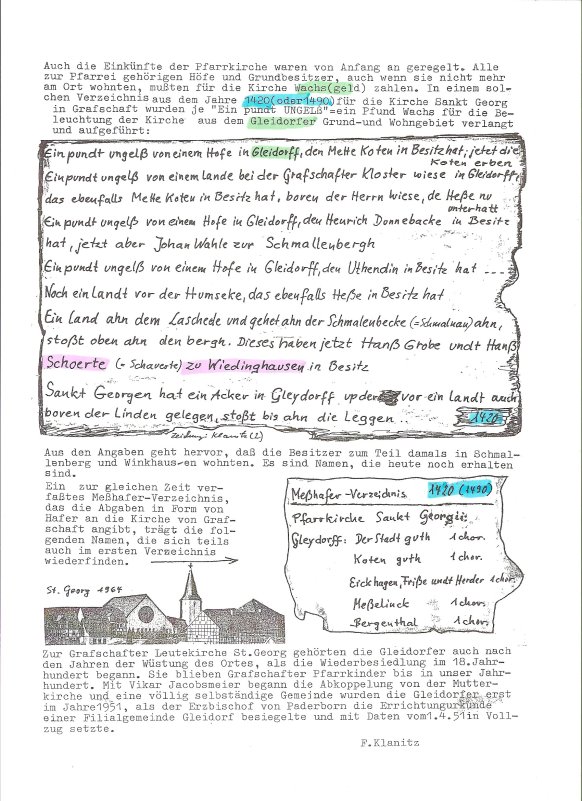 Auch die Einkünfte der Pfarrkirche waren von Anfang an geregelt. Alle
zur Pfarrei gehörigen Höfe und Grundbesitzer, auch wenn sie nicht mehr
am Ort wohnten, mußten für die Kirche Wachs(geld) zahlen. In einem sol-
chen Verzeichnis aus dem Jahre 1420(oder1490)für die Kirche Sankt Georg
in Grafschaft wurden je "Ein pundt UNGELß"=ein Pfund Wachs für die Be-
leuchtung der Kirche aus dem Gleidorfer Grund-und Wohngebiet verlangt
und aufgeführt:
Ein pundt ungelß von einem Hofe in Gleidorff, den Mette Koten in Besitz hat; jetzt die
Koten erben
Ein pundt ungelß von einem Lande bei der Grafschafter Kloster wiese in Gleidorff,
das ebenfalls Mette Koten in Besitz hat, boven der Herrn wiese, de Heße nu
unterhatt
Ein pundt ungelß von einem Hofe in Gleidorff, den Heurich Donnebacke in Besitz
hat, jetzt aber Johan Wahle zur Schmallenbergh
Ein pundt ungelß von einem Hofe in Gleidorff, den Uthendin in Besitz hat ----
Noch ein Landt vor der Humseke, das ebenfalls Heße in Besitz hat
Ein Land ahn dem Laschede und gehet ahn der Schmalenbecke (=Schmalnau) ahn,
stoßt oben ahn den bergh. Dieses haben jetzt Hanß Grobe undt Hanß
Schoerte (= Schauerte) zu Wiedinghausen in Besitz
Sankt Georgen hat ein Acker in Gleydorff up der vor ein Landt auch
boven der Linden gelegen, stoßt bis ahn die Leggen .. 1420
Zeichng: Klanitz
Aus den Angaben geht hervor, daß die Besitzer zum Teil damals in Schmal-
lenberg und Winkhausen wohnten. Es sind Namen, die heute noch erhalten
sind.
Ein zur gleichen Zeit ver-
faßtes Meßhafer-Verzeichnis,
das die Abgaben in Form von
Hafer an die Kirche von Graf-
schaft angibt, trägt die fol-
genden Namen, die sich teils
auch im ersten Verzeichnis
wiederfinden.
Meßhafer-Verzeichnis 1420 (1490)
Pfarrkirche Sankt Georgii:
Gleydorff: Der Stadt guth 1 chor.
Koten guth 1 chor.
Eickhagen, Friße undt Herder 1 chor.
Meßelinck 1 chor.
Bergenthal 1 chor.
St. Georg 1964
Zur Grafschafter Leutekirche St.Georg gehörten die Gleidorfer auch nach
den Jahren der Wüstung des Ortes, als die Wiederbesiedlung im 18.Jahr-
hundert begann. Sie blieben Grafschafter Pfarrkinder bis in unser Jahr-
hundert. Mit Vikar Jacobsmeier begann die Abkoppelung von der Mutter-
kirche und eine völlig selbständige Gemeinde wurden die Gleidorfer erst
im Jahre1951, als der Erzbischof von Paderborn die Errichtungurkunde
einer Filialgemeinde Gleidorf besiegelte und mit Daten vom1.4.51in Voll-
zug setzte.
F.Klanitz